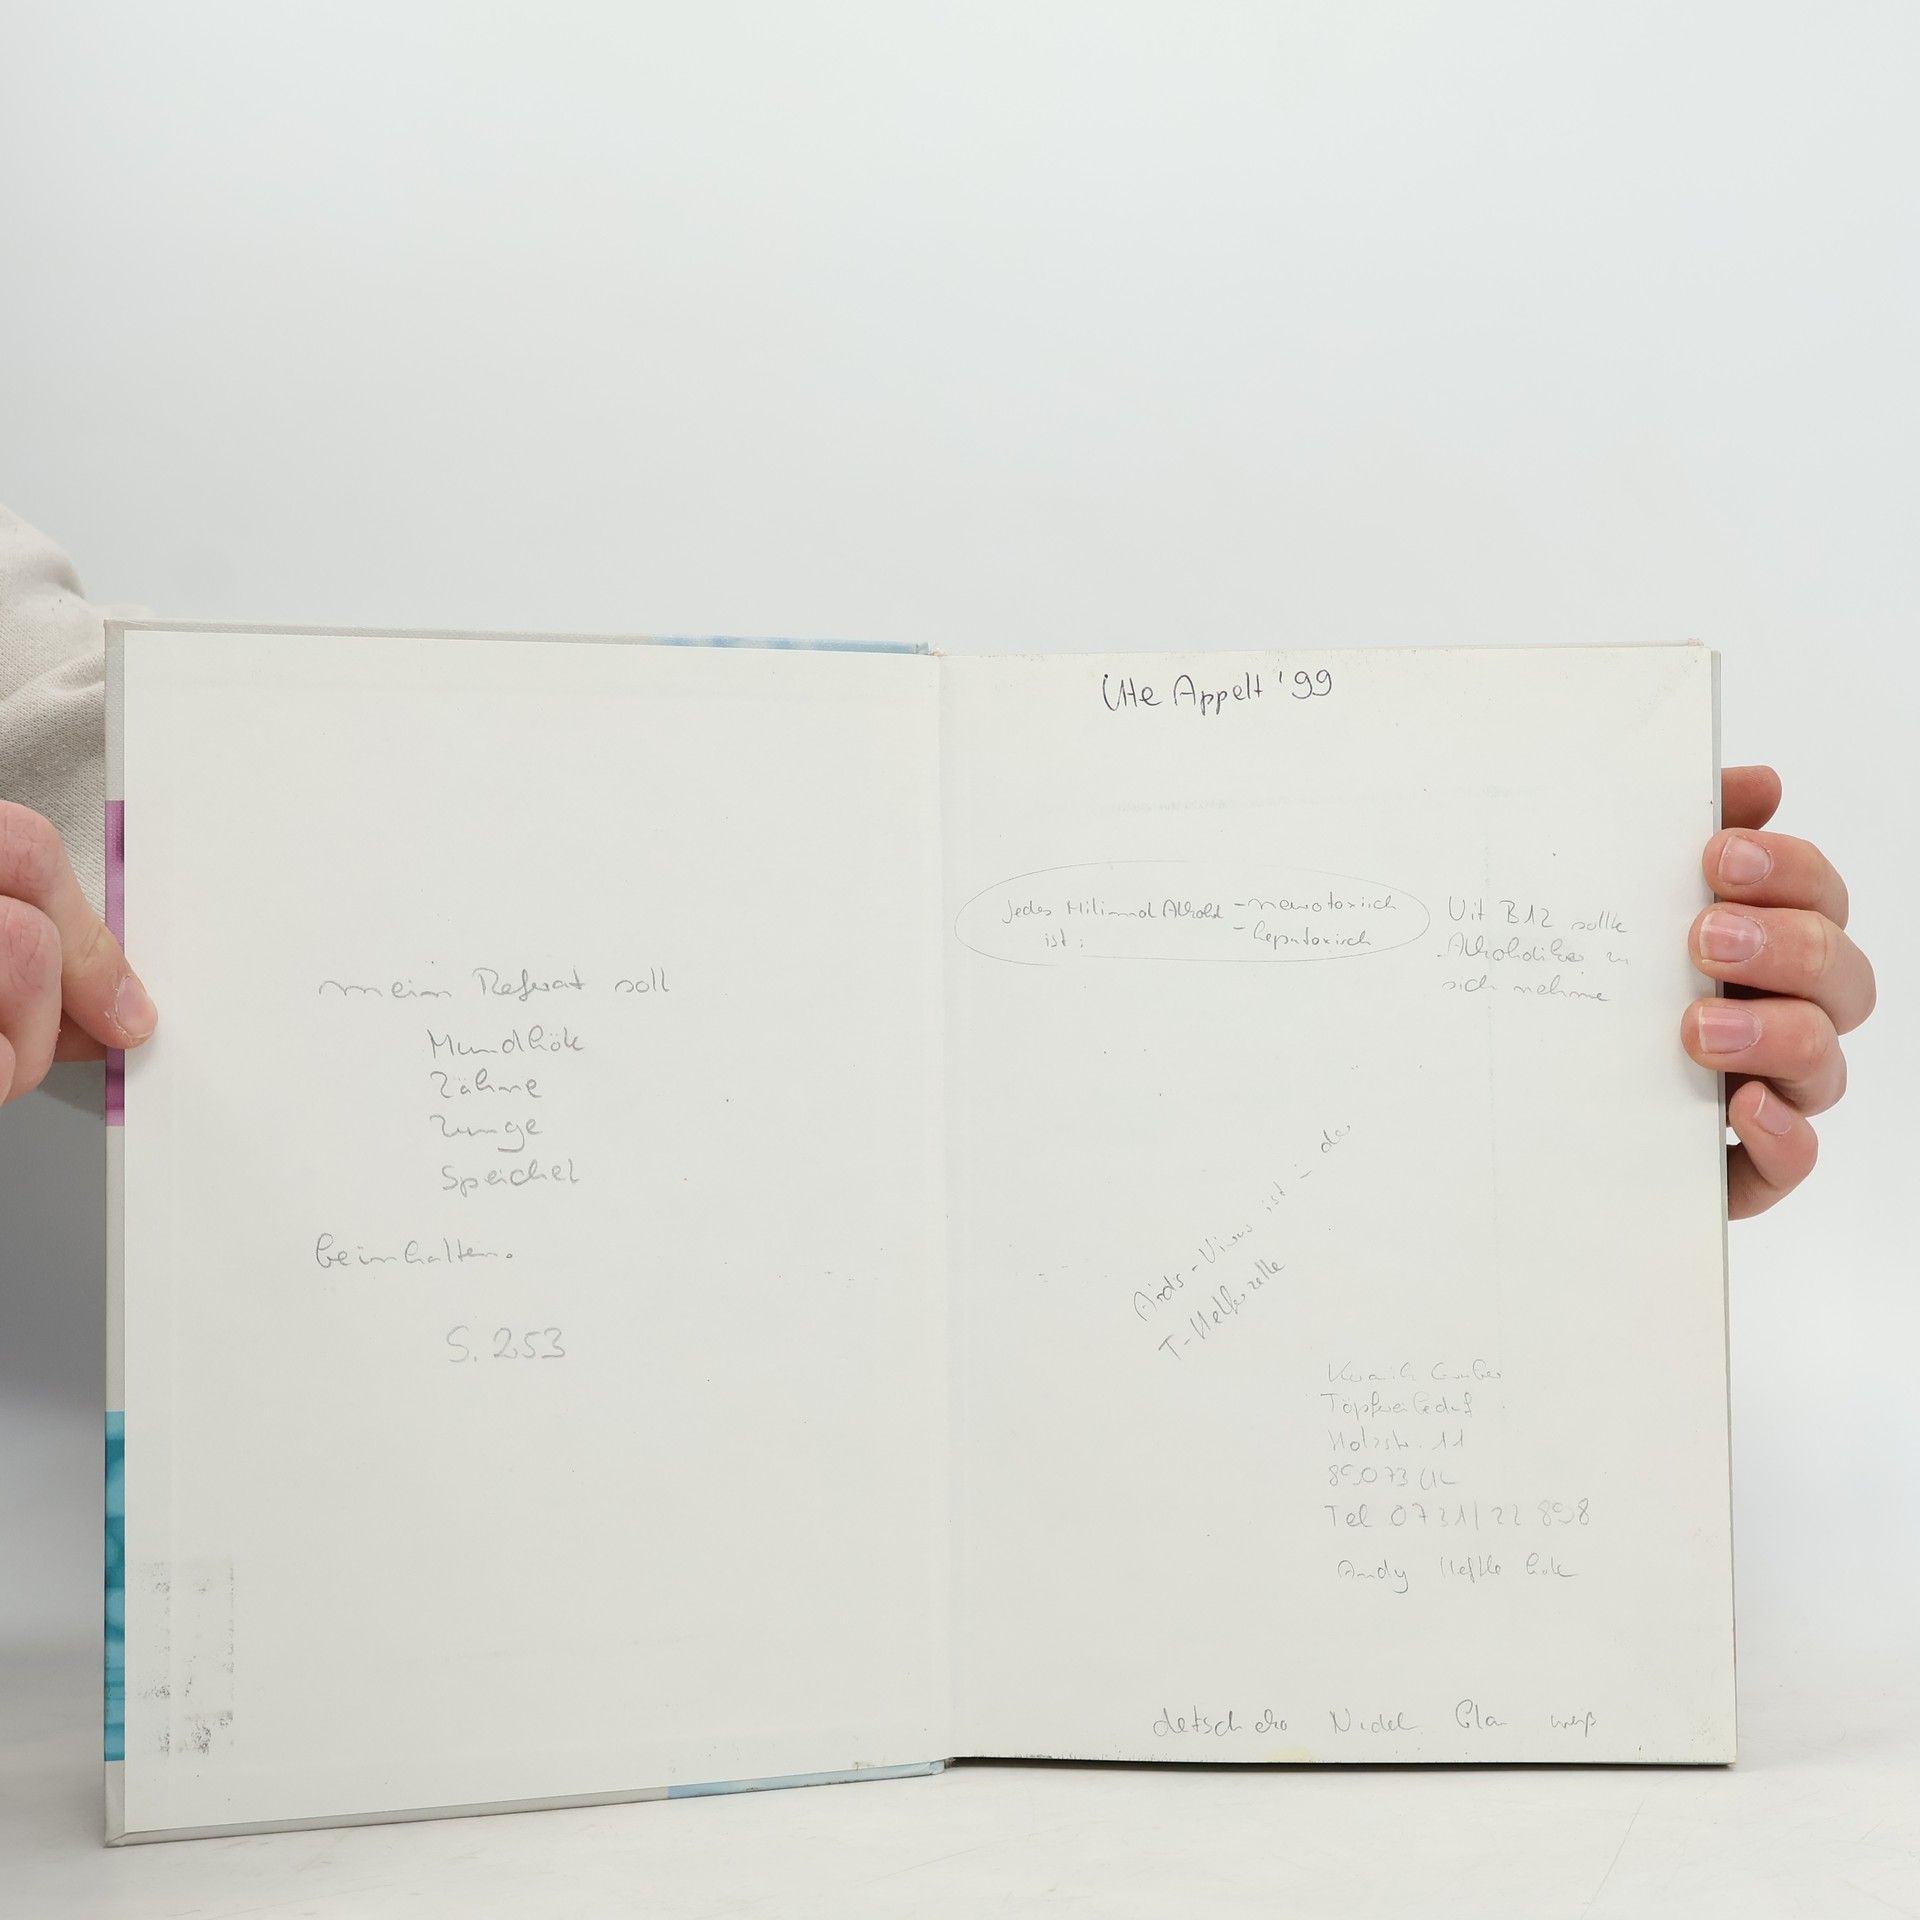 mein Referat soll
Mundhöle
Zähne
Zunge
Speichel
beinhalten.
S. 253
Ute Appelt '99
jedes Alkohol - neurotoxisch
ist: - hepatoxisch
Vit B12 sollte
Alkoholiker zu
sich nehme
Aids-Virus ist in der
T-Helferzelle
Töpfereibedarf
Holzstr. 11
89073
Tel 0731/22 898
Andy